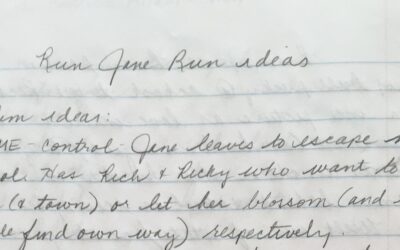 Run Jane Run ideas
ideas:
control - Jane leaves to escape
Has Rich & Ricky who want to
(& town) or let her blossom (and
find own way) respectively.